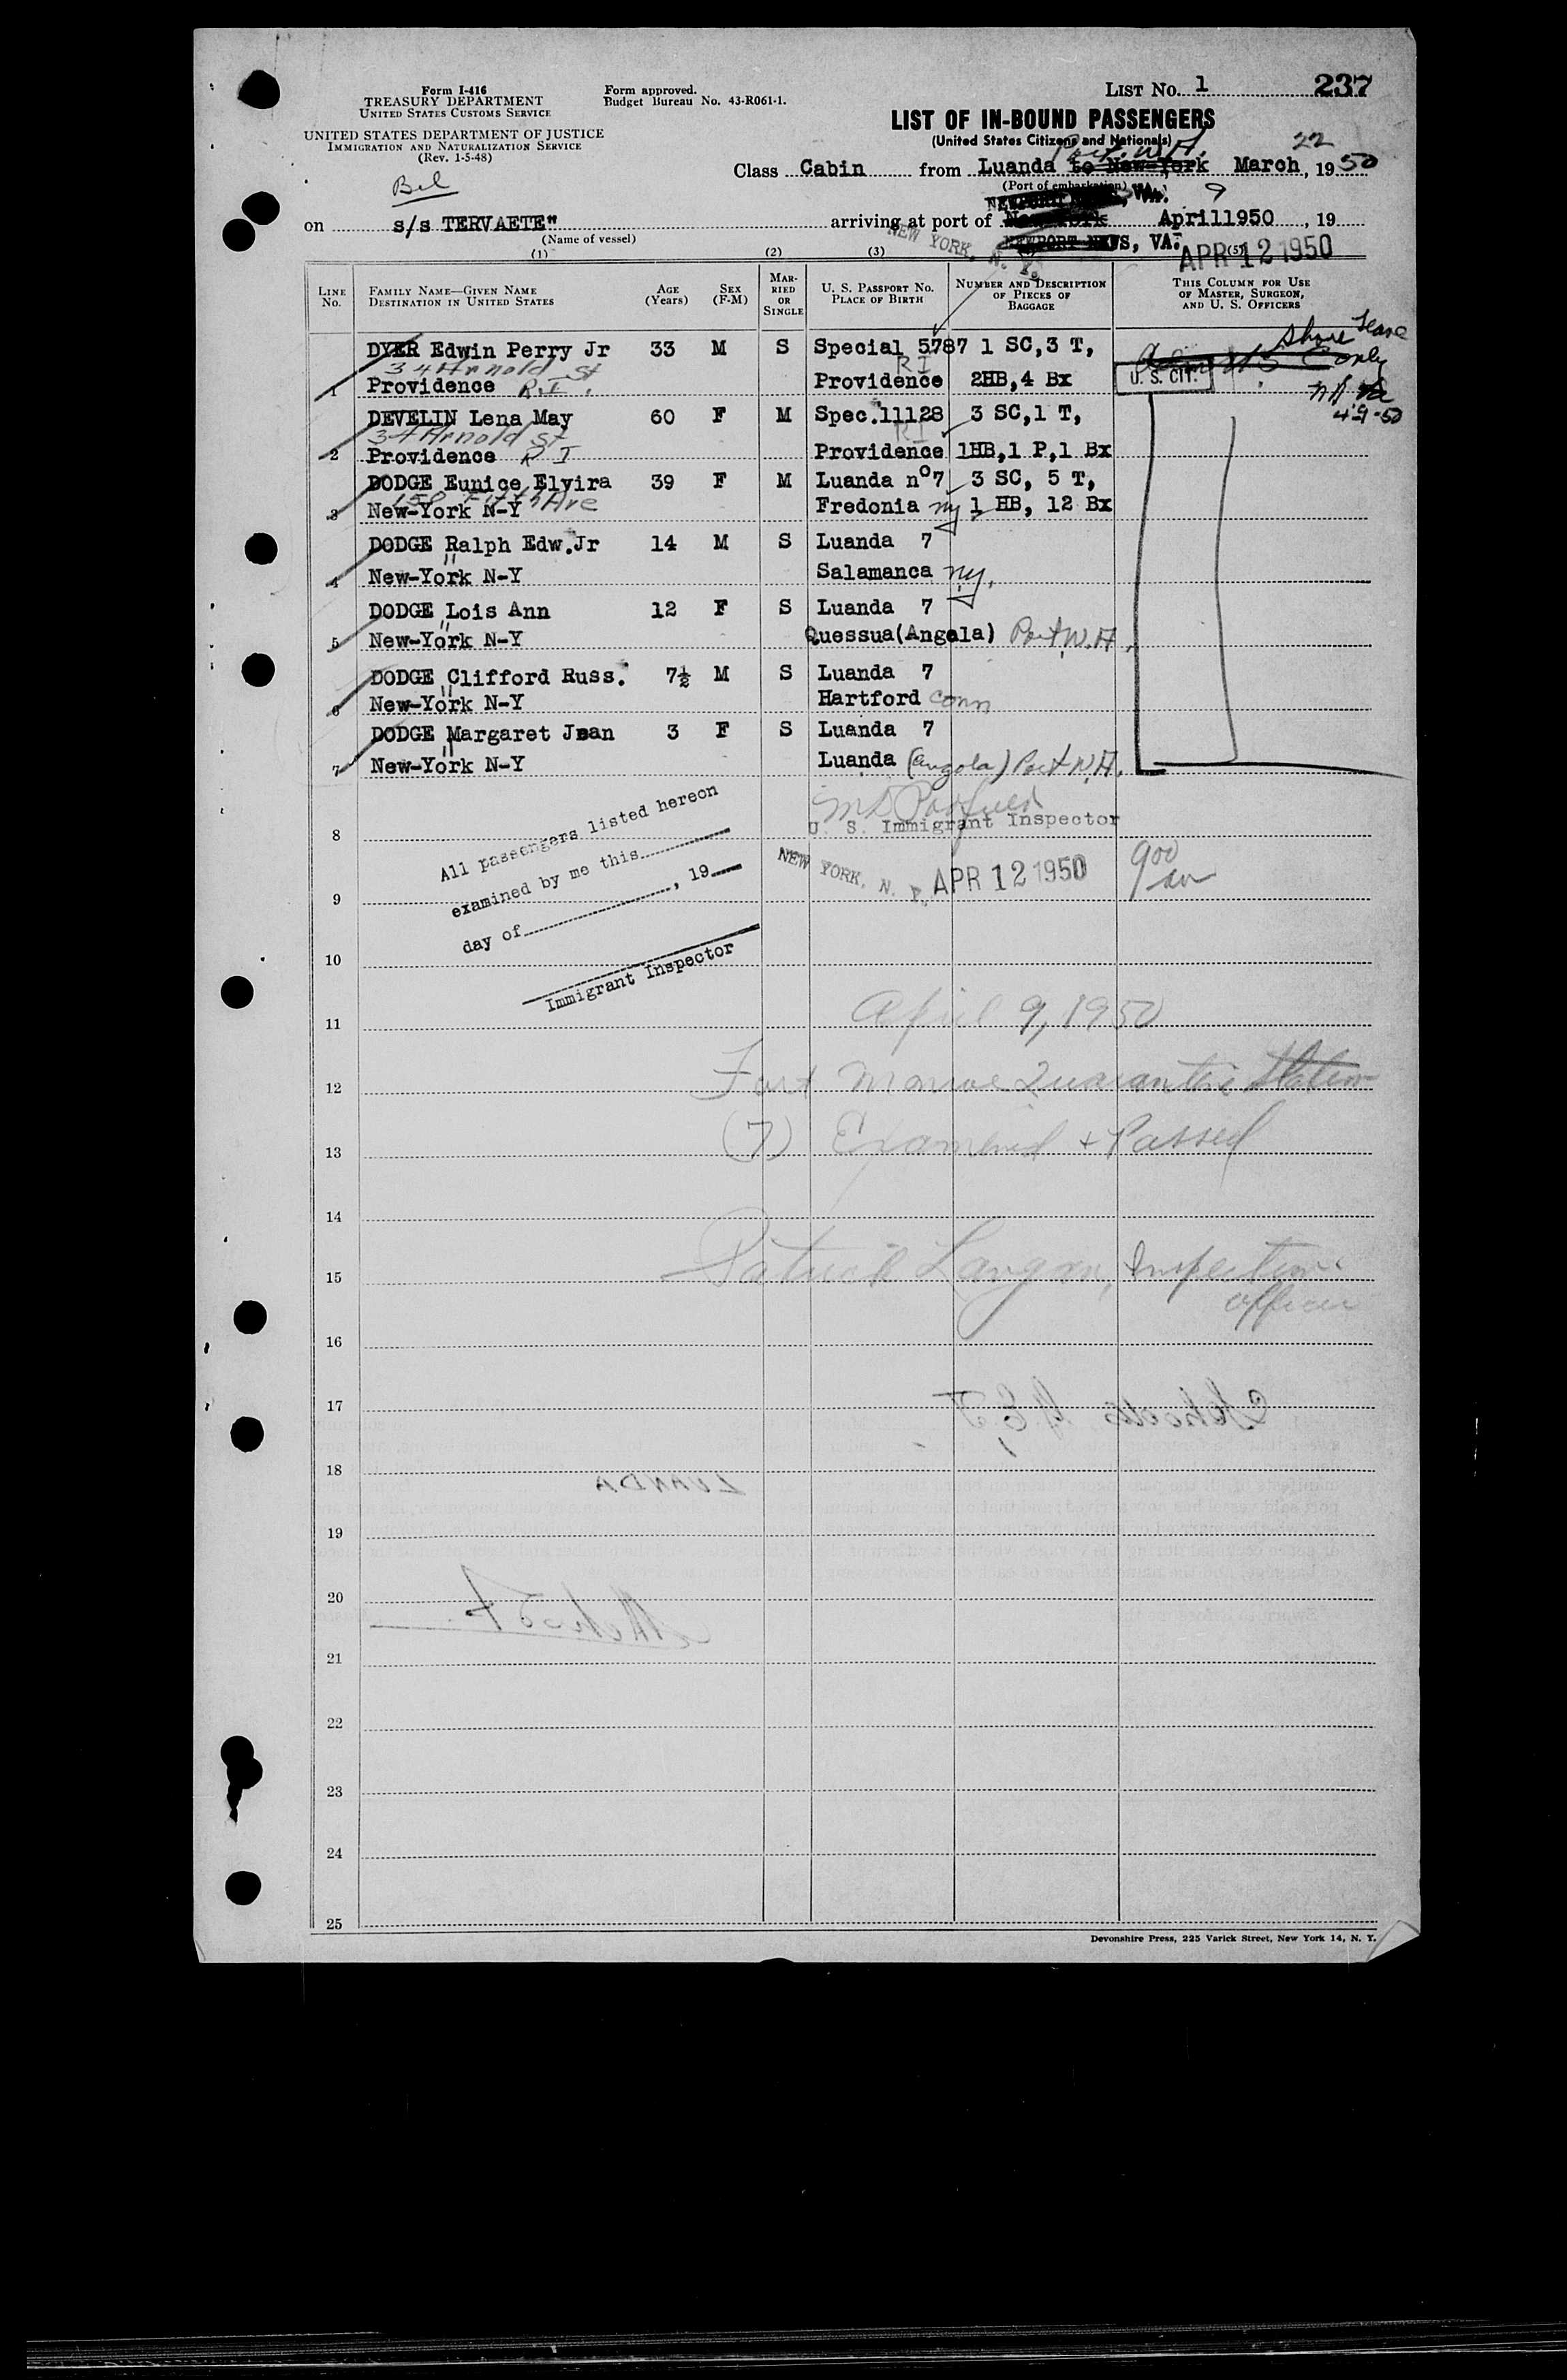 Form I-416
TREASURY DEPARTMENT
UNITED STATES CUSTOMS SERVICE
UNITED STATES DEPARTMENT OF JUSTICE
IMMIGRATION AND NATURALIZATION SERVICE
(Rev. 1-5-48)
Form approved.
Budget Bureau No. 43-R061-1.
LIST No. 1 237
LIST OF IN-BOUND PASSENGERS
(United States Citizens and Nationals)
Port. W. A. 22
Class Cabin from Luanda to New-York March, 1950
(Port of embarkation)
Bel
NEWPORT NEWS, VA. 9
on s/s TERVAETE" arriving at port of New-York April1950, 19
(Name of vessel)
NEW YORK, N. Y.
NEWPORT NEWS, VA.
APR 12 1950
(1) (2) (3) (5)
LINE No.
FAMILY NAME—GIVEN NAME
DESTINATION IN UNITED STATES
AGE (Years)
SEX (F-M)
MARRIED OR SINGLE
U. S. PASSPORT No.
PLACE OF BIRTH
NUMBER AND DESCRIPTION OF PIECES OF BAGGAGE
THIS COLUMN FOR USE OF MASTER, SURGEON, AND U. S. OFFICERS
DYER Edwin Perry Jr 33 M S Special 5787 1 SC,3 T,
Shore Leave
only
34 Arnold St RI
1 Providence R.I. Providence 2HB,4 Bx U. S. CIT.
4-9-50
DEVELIN Lena May 60 F M Spec.11128 3 SC,1 T,
34 Arnold St RI
2 Providence R I Providence 1HB,1 P,1 Bx
DODGE Eunice Elvira 39 F M Luanda nº7 3 SC, 5 T,
150 Fifth Ave
3 New-York N-Y Fredonia ny 1 HB, 12 Bx
DODGE Ralph Edw.Jr 14 M S Luanda 7
"
4 New-York N-Y Salamanca ny.
DODGE Lois Ann 12 F S Luanda 7
"
5 New-York N-Y Quessua(Angola) Port W. A.
DODGE Clifford Russ. 7½ M S Luanda 7
"
6 New-York N-Y Hartford Conn
DODGE Margaret Jean 3 F S Luanda 7
"
7 New-York N-Y Luanda (Angola) Port W. A.
All passengers listed hereon
examined by me this
day of , 19
Immigrant Inspector
8 U. S. Immigrant Inspector
9 NEW YORK, N. Y. APR 12 1950 900 am
10
11 April 9, 1950
12 Fort Monroe Quarantine Station
13 (7) Examined + Passed
14
15 Patrick Langan, Inspection
officer
16
17
18 LUANDA
19
20
21
22
23
24
25
Devonshire Press, 225 Varick Street, New York 14, N. Y.